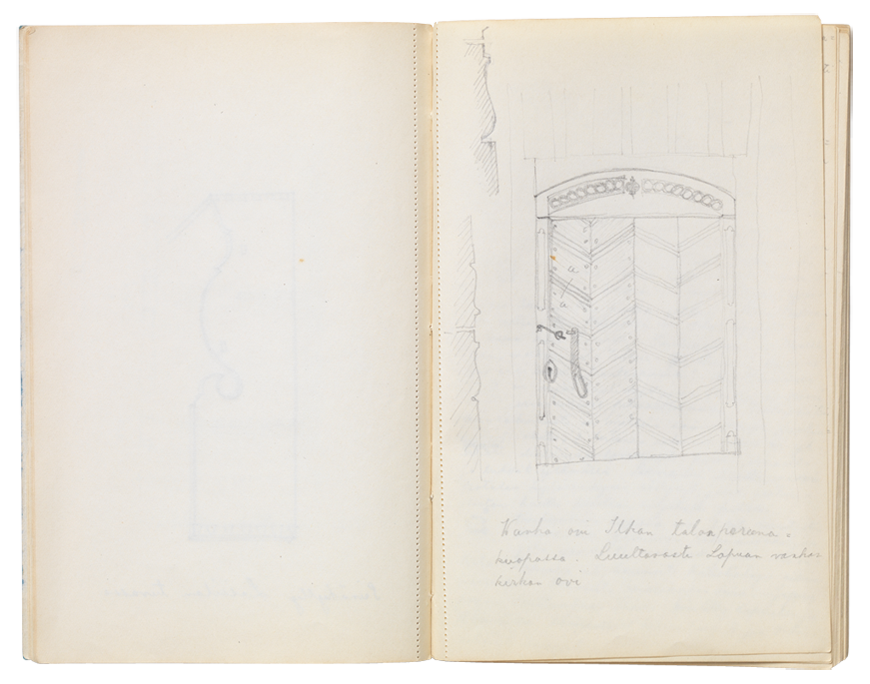 a
a
Vanha ovi Ilkan talon peruna=
kuopassa. Luultavasti Lapuan vanhan
kirkon ovi